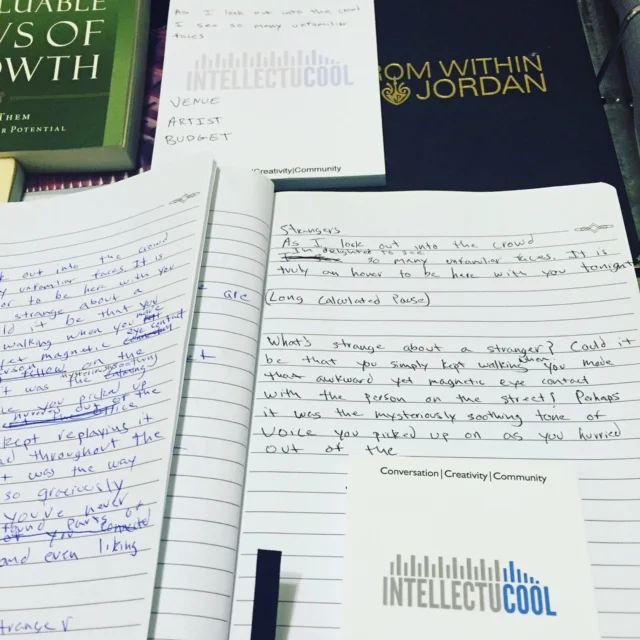 LUABLE
WS OF
OWTH
THEM
R POTENTIAL
As I look out into the crowd
I see so many unfamiliar
faces
INTELLECTUCOOL
VENUE
ARTIST
BUDGET
|Creativity|Community
ROM WITHIN
JORDAN
out into the crowd
unfamiliar faces. It is
to be here with you
strange about a
it be that you
walking when you
magnetic eye contact
on the
was the
picked up
of the office
kept replaying it
throughout the
was the way
so graciously
you've never
found parts of
and even liking
stranger
are
Strangers
As I look out into the crowd
I'm delighted to see
so many unfamiliar faces. It is
truly an honor to be here with you tonight
(Long Calculated Pause)
What's strange about a stranger? Could it
be that you simply kept walking when you made
that awkward yet magnetic eye contact
with the person on the street? Perhaps
it was the mysteriously soothing tone of
voice you picked up on as you hurried
out of the
Conversation|Creativity|Community
INTELLECTUCOOL